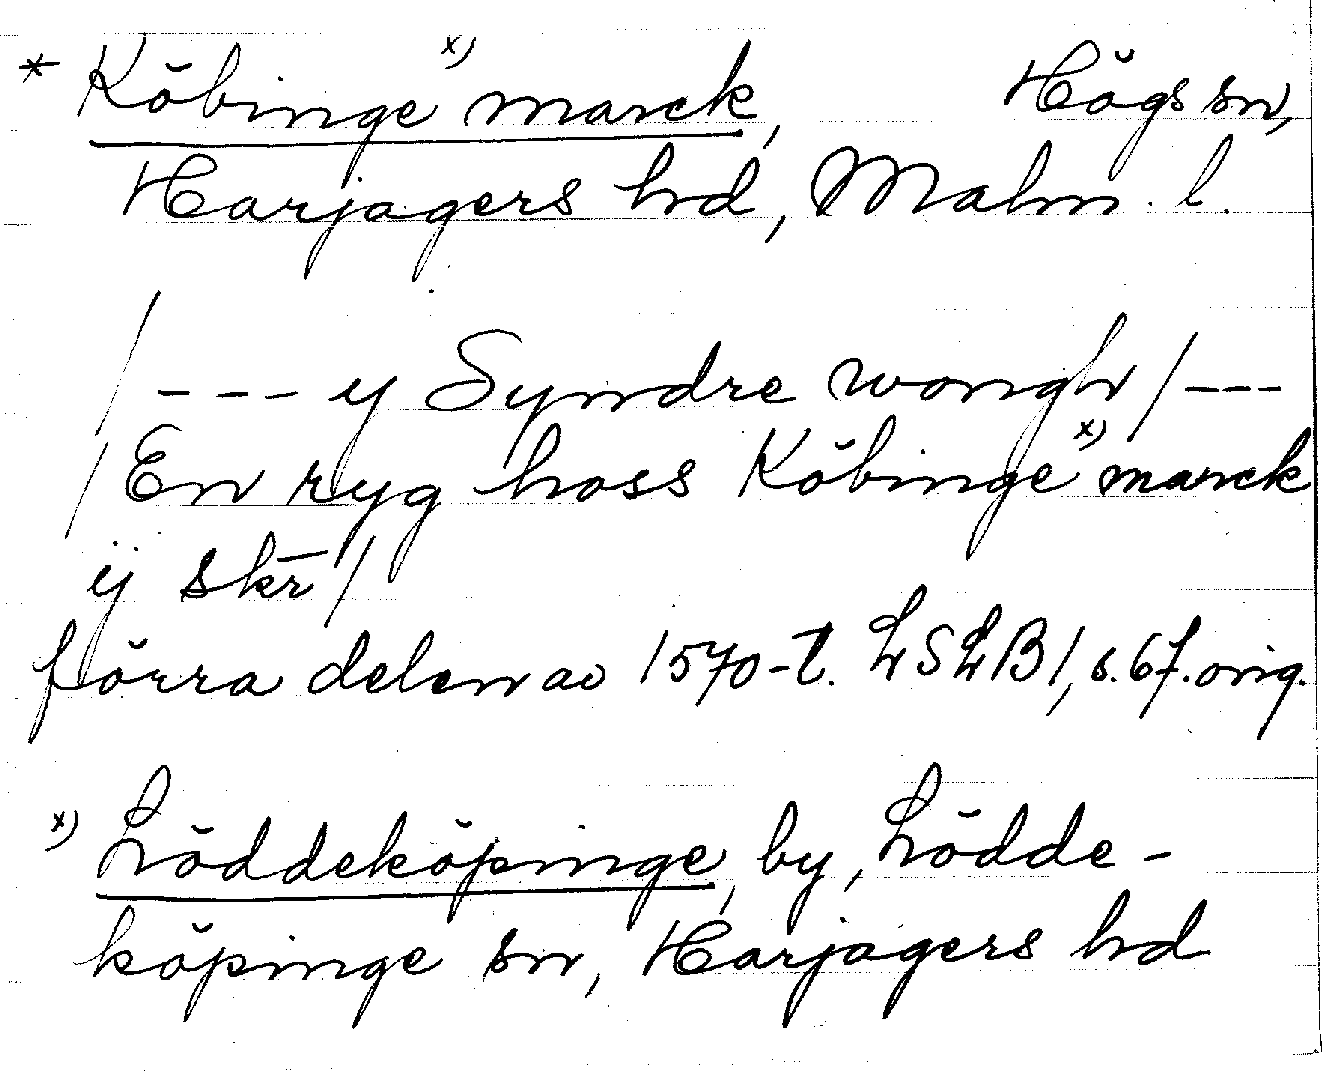 * Köbinge x) marck, Högs sn,
Harjagers hd, Malm. l.
/--- y Syndre wongh/---
/En ryg hoss Köbinge x) marck
ij skr̄/
förra delen av 1570-t. LSLB1, s. 67. orig.
x) Löddeköpinge, by, Lödde-
köpinge sn, Harjagers hd